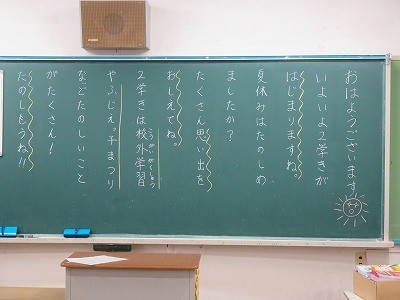 おはようございます
いよいよ2学きが
はじまりますね。
夏休みはたのしめ
ましたか?
たくさん思い出を
おしえてね。
2学きは校外学習
こうがいがくしゅう
などたのしいこと
がたくさん!
たのしもうね!!